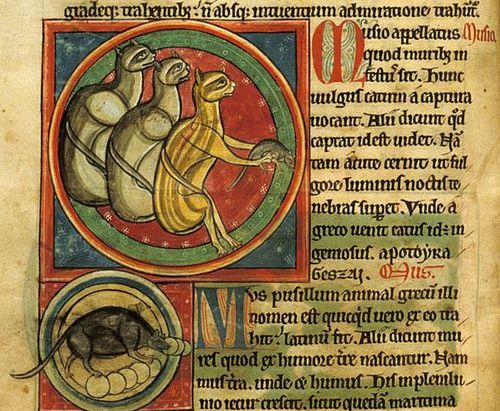 gradeq; trahentib; n̄ absq; intuentium admiratione trahūt.
Musio appellatus Musio.
quod muribz in
festus sit. Hunc
uulgus catum a captura
uocant. Alii dicunt qd̄
captat id est uidet. Nā
tam acute cernit ut ful
gore luminis noctis te
nebras supet. Vnde a
greco uenit catus id; in
geniosus. apotoyra
geszai. Mus.
Mus pusillum animal grecū illi
nomen est quicqd uero ex eo tra
hit' latinū fit. Alii dicunt mu
res quod ex humore t're nascantur. Nam
mus t'ra. unde & humus. His in plenilu
nio iecur crescit. sicut quedam maritima